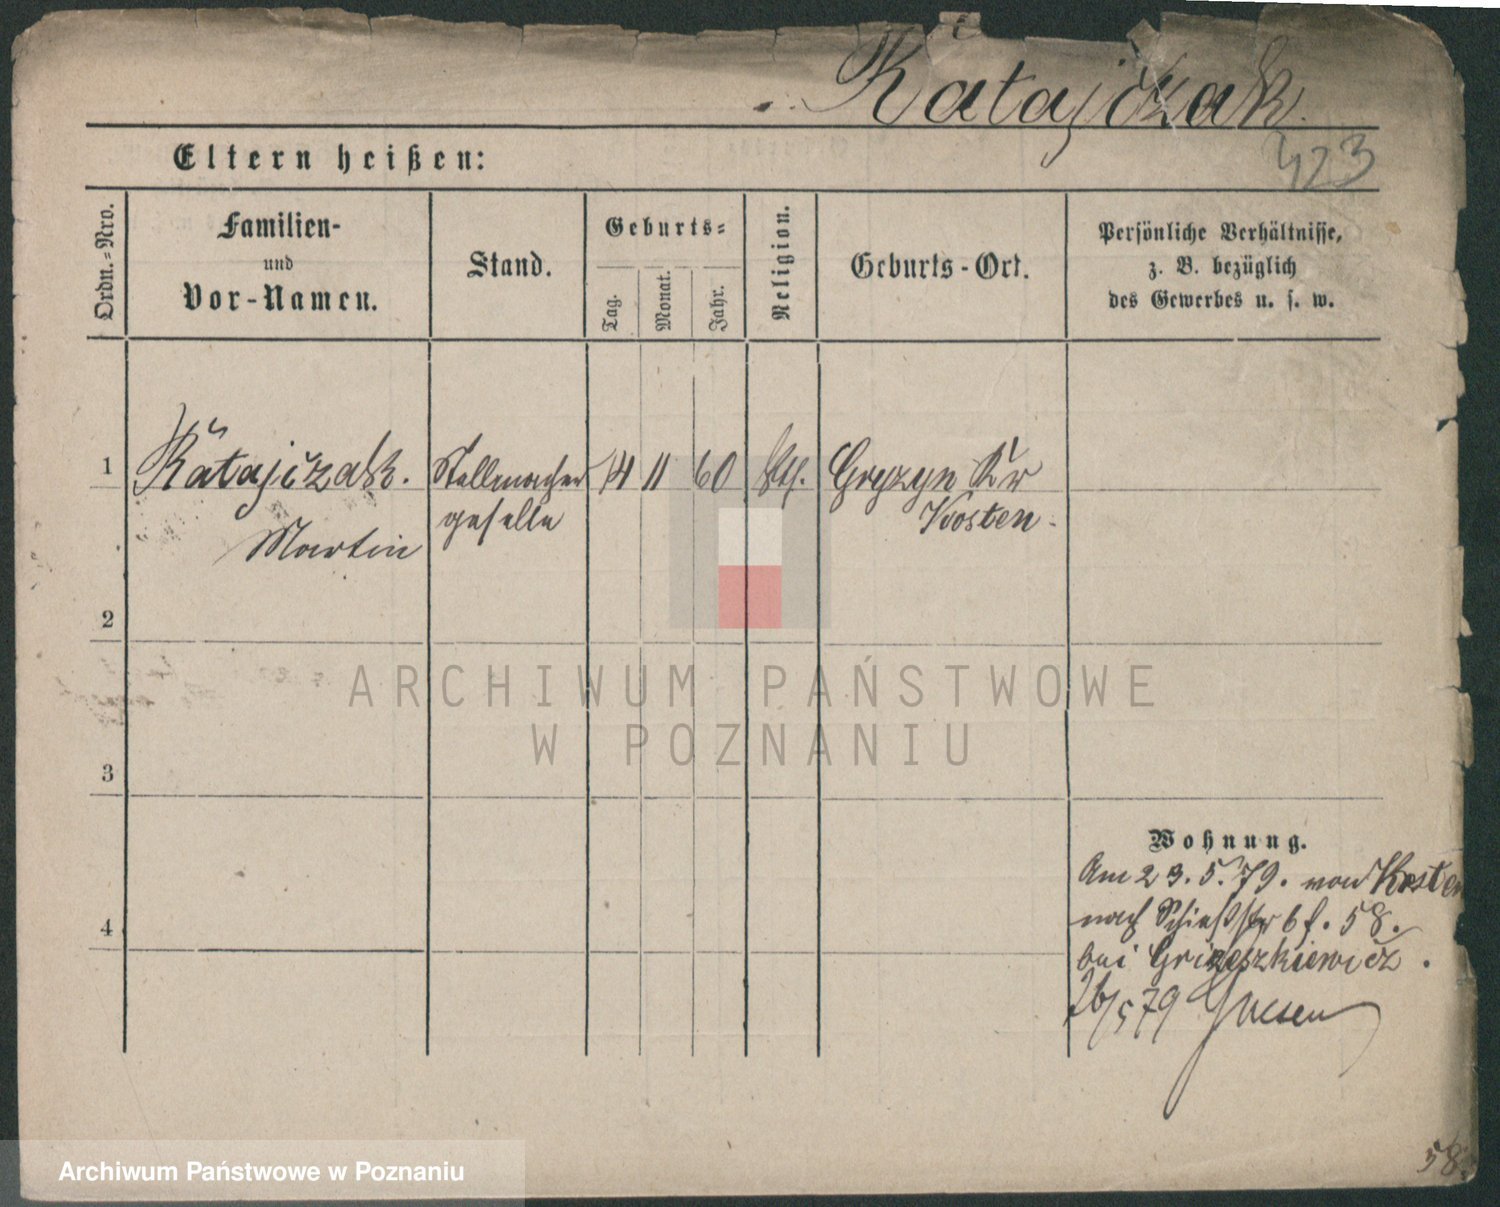 Ratajčzak.
423
Eltern heißen:
Ordn.=Nro.
Familien-
und
Vor-Namen.
Stand.
Geburts=
Tag.
Monat.
Jahr.
Religion.
Geburts-Ort.
Persönliche Verhältnisse,
z. B. bezüglich
des Gewerbes u. s. w.
1
Ratajčzak.
Martin
Stellmacher
geselle
11
60
kth.
Gryzyn Kr
Kosten.
2
3
4
Wohnung.
Am 23.5.79. von Kosten
nach Schießstr 6 f. 58.
bei
26/5 79
58.
ARCHIWUM PAŃSTWOWE
W POZNANIU
Archiwum Państwowe w Poznaniu